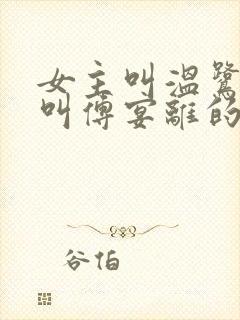 女主叫温鹭
叫傅宴離的
谷怕